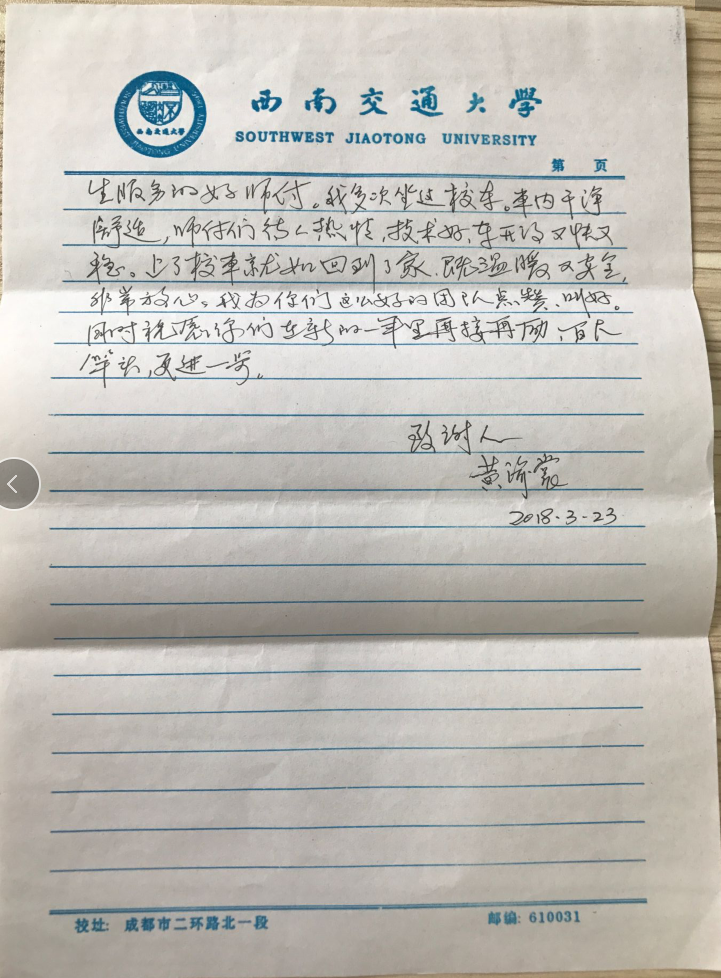 西南交通大学
西南交通大學
SOUTHWEST JIAOTONG UNIVERSITY
SOUTHWEST JIAOTONG UNIVERSITY
第 页
生服务的好师付。我多次坐过校车。车内干净
舒适,师付们待人热情,技术好,车开得又快又
稳。上了校车就如回到了家,既温暖又安全,
非常放心。我为你们这么好的团队点赞、叫好。
同时祝愿你们在新的一年里再接再励,百尺
竿头,更进一步。
致谢人
黄
2018.3.23
校址: 成都市二环路北一段
邮编: 610031